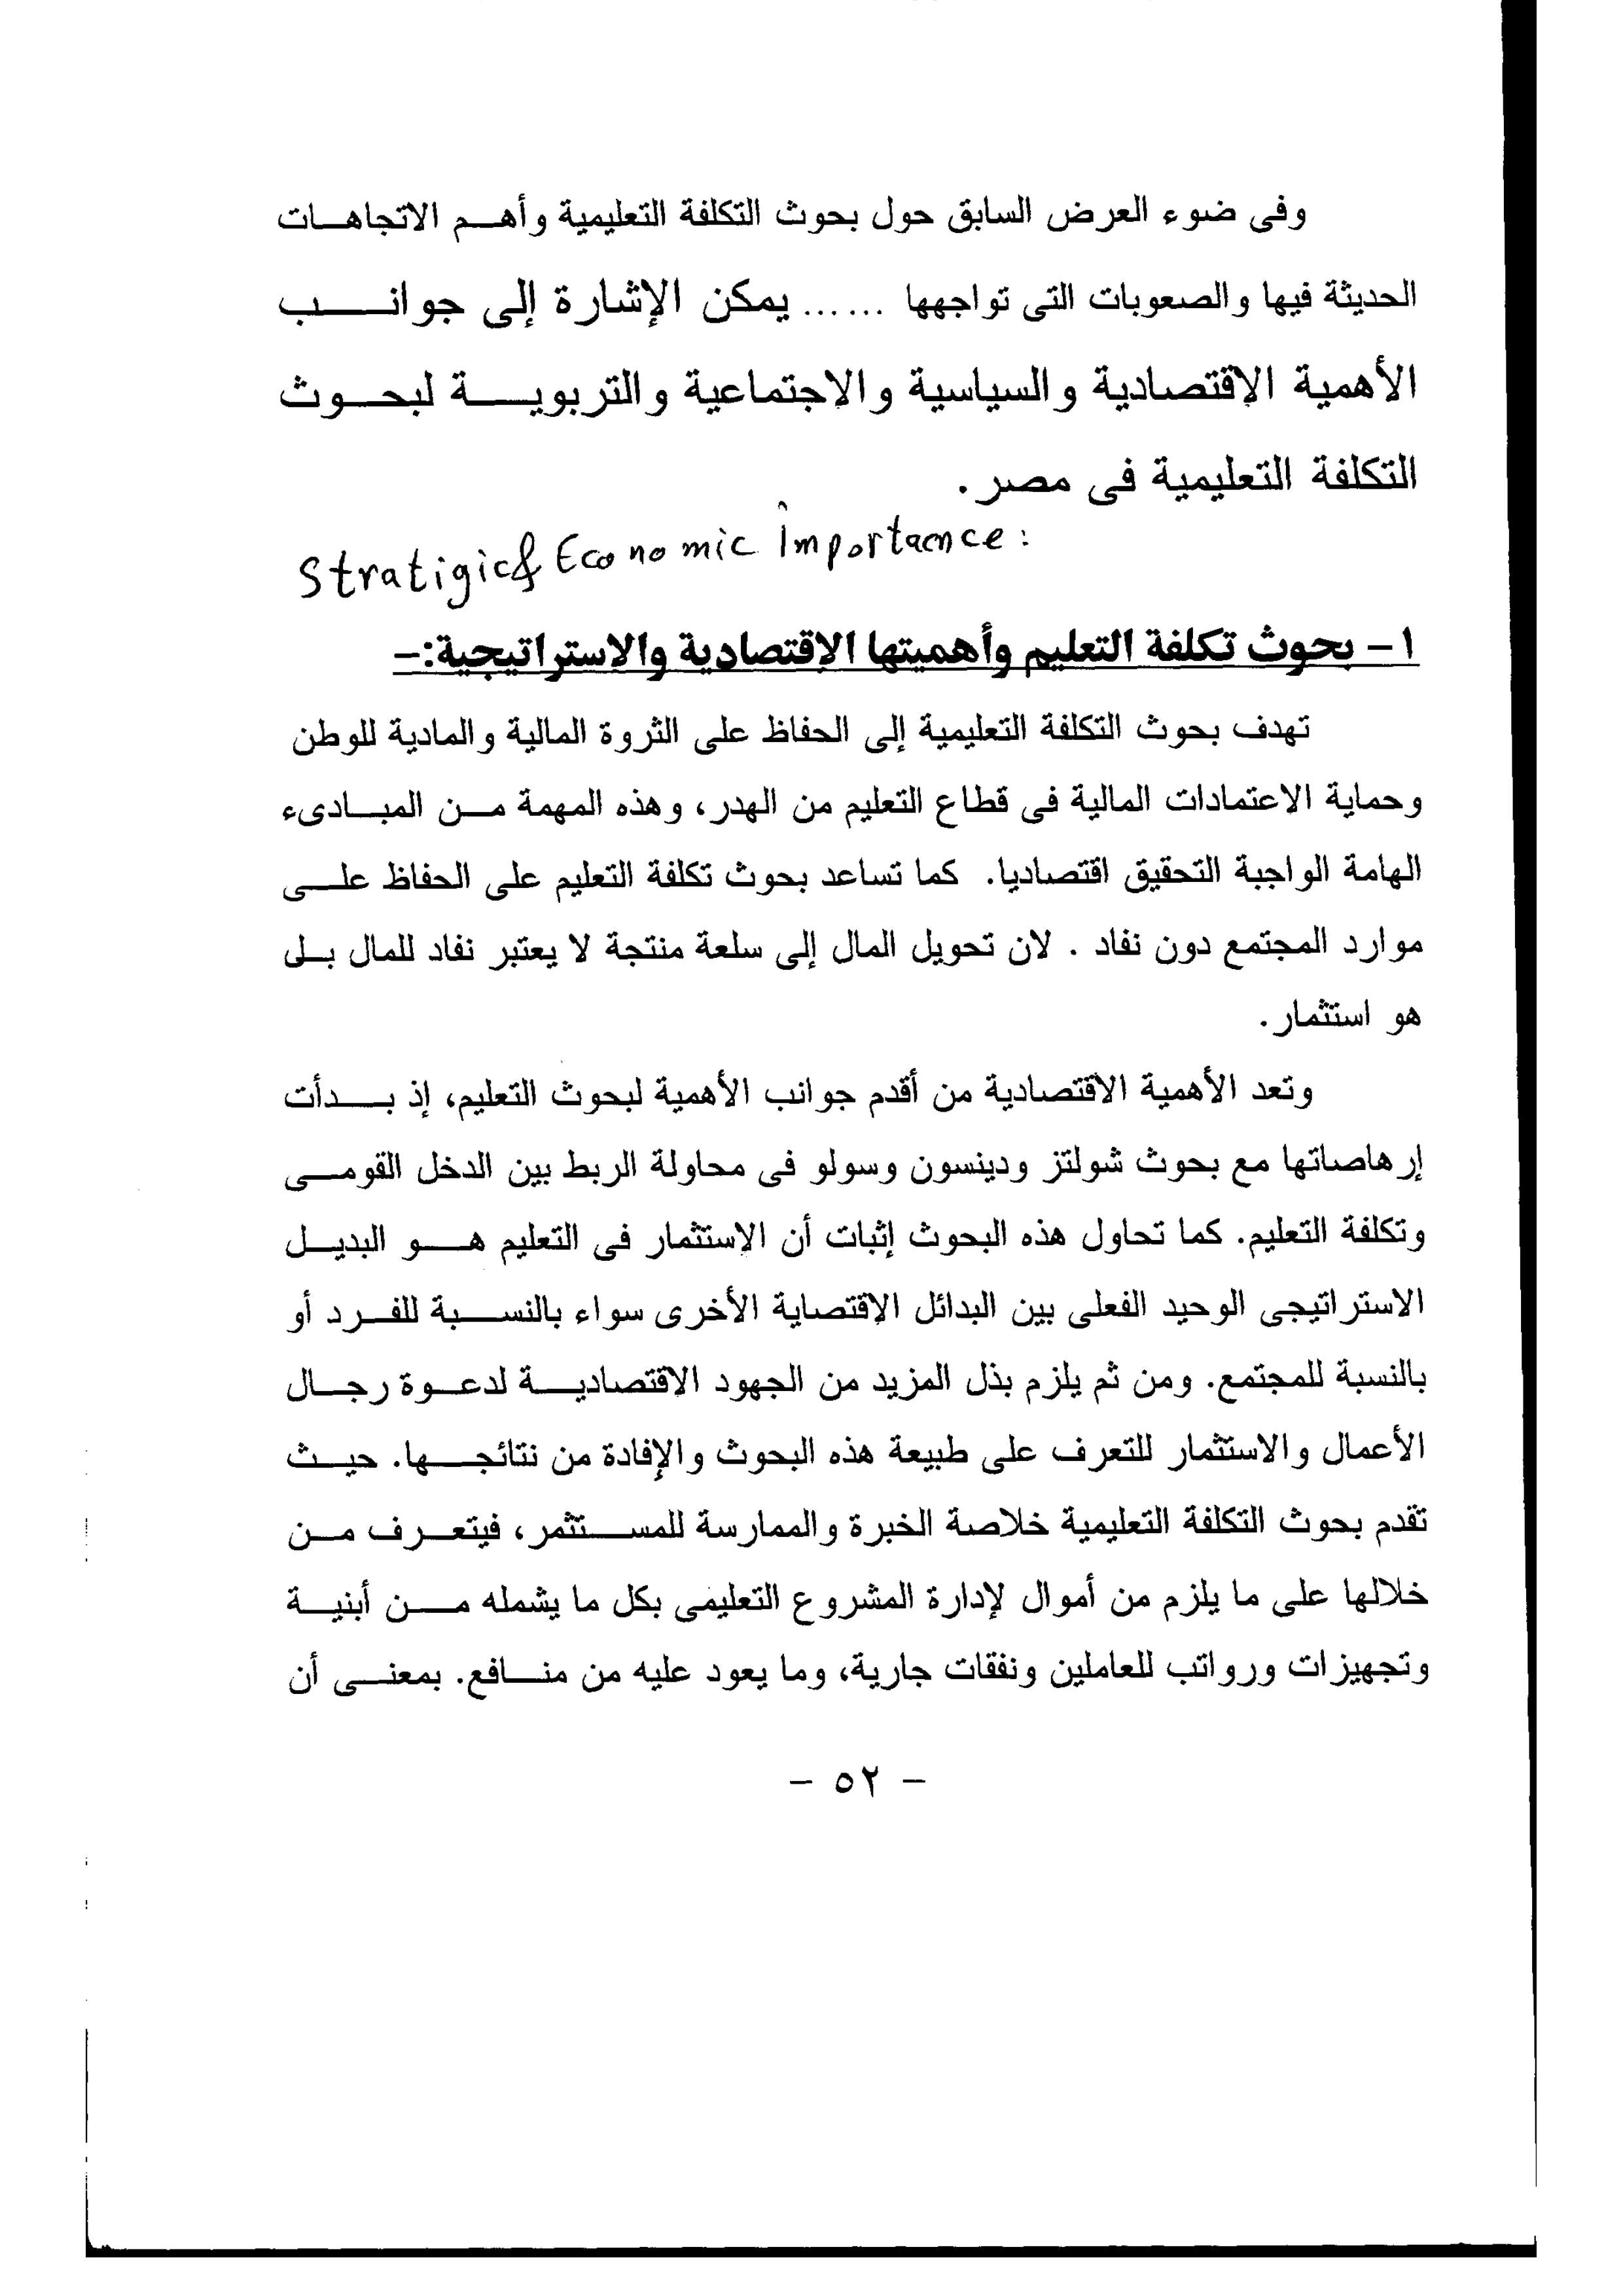 وفى ضوء العرض السابق حول بحوث التكلفة التعليمية وأهم الاتجاهات
الحديثة فيها والصعوبات التى تواجهها ...... يمكن الإشارة إلى جوانب
الأهمية الإقتصادية والسياسية والاجتماعية والتربوية لبحوث
التكلفة التعليمية فى مصر .
Stratigic & Economic importance :
١ – بحوث تكلفة التعليم وأهميتها الإقتصادية والاستراتيجية:–
تهدف بحوث التكلفة التعليمية إلى الحفاظ على الثروة المالية والمادية للوطن
وحماية الاعتمادات المالية فى قطاع التعليم من الهدر، وهذه المهمة من المبادىء
الهامة الواجبة التحقيق اقتصاديا. كما تساعد بحوث تكلفة التعليم على الحفاظ على
موارد المجتمع دون نفاد . لان تحويل المال إلى سلعة منتجة لا يعتبر نفاد للمال بلى
هو استثمار.
وتعد الأهمية الاقتصادية من أقدم جوانب الأهمية لبحوث التعليم، إذ بدأت
إرهاصاتها مع بحوث شولتز ودينسون وسولو فى محاولة الربط بين الدخل القومى
وتكلفة التعليم. كما تحاول هذه البحوث إثبات أن الإستثمار فى التعليم هو البديل
الاستراتيجى الوحيد الفعلى بين البدائل الإقتصاية الأخرى سواء بالنسبة للفرد أو
بالنسبة للمجتمع. ومن ثم يلزم بذل المزيد من الجهود الاقتصادية لدعوة رجال
الأعمال والاستثمار للتعرف على طبيعة هذه البحوث والإفادة من نتائجها. حيث
تقدم بحوث التكلفة التعليمية خلاصة الخبرة والممارسة للمستثمر، فيتعرف من
خلالها على ما يلزم من أموال لإدارة المشروع التعليمى بكل ما يشمله من أبنية
وتجهيزات ورواتب للعاملين ونفقات جارية، وما يعود عليه من منافع. بمعنى أن
– ٥٢ –